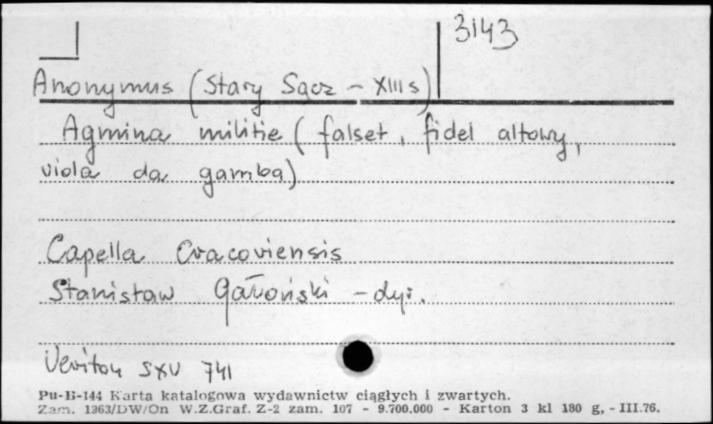 3143
Anonymus (Stary Sącz - XIII s)
Agmina militie (falset, fidel altowy,
viola da gamba)
Capella Cracoviensis
Stanisław Gałoński - dyr.
Veriton SXV 741
Pu-B-144 Karta katalogowa wydawnictw ciągłych i zwartych.
Zam. 1363/DW/On W.Z.Graf. Z-2 zam. 107 - 9.700.000 - Karton 3 kl 180 g, - III.76.